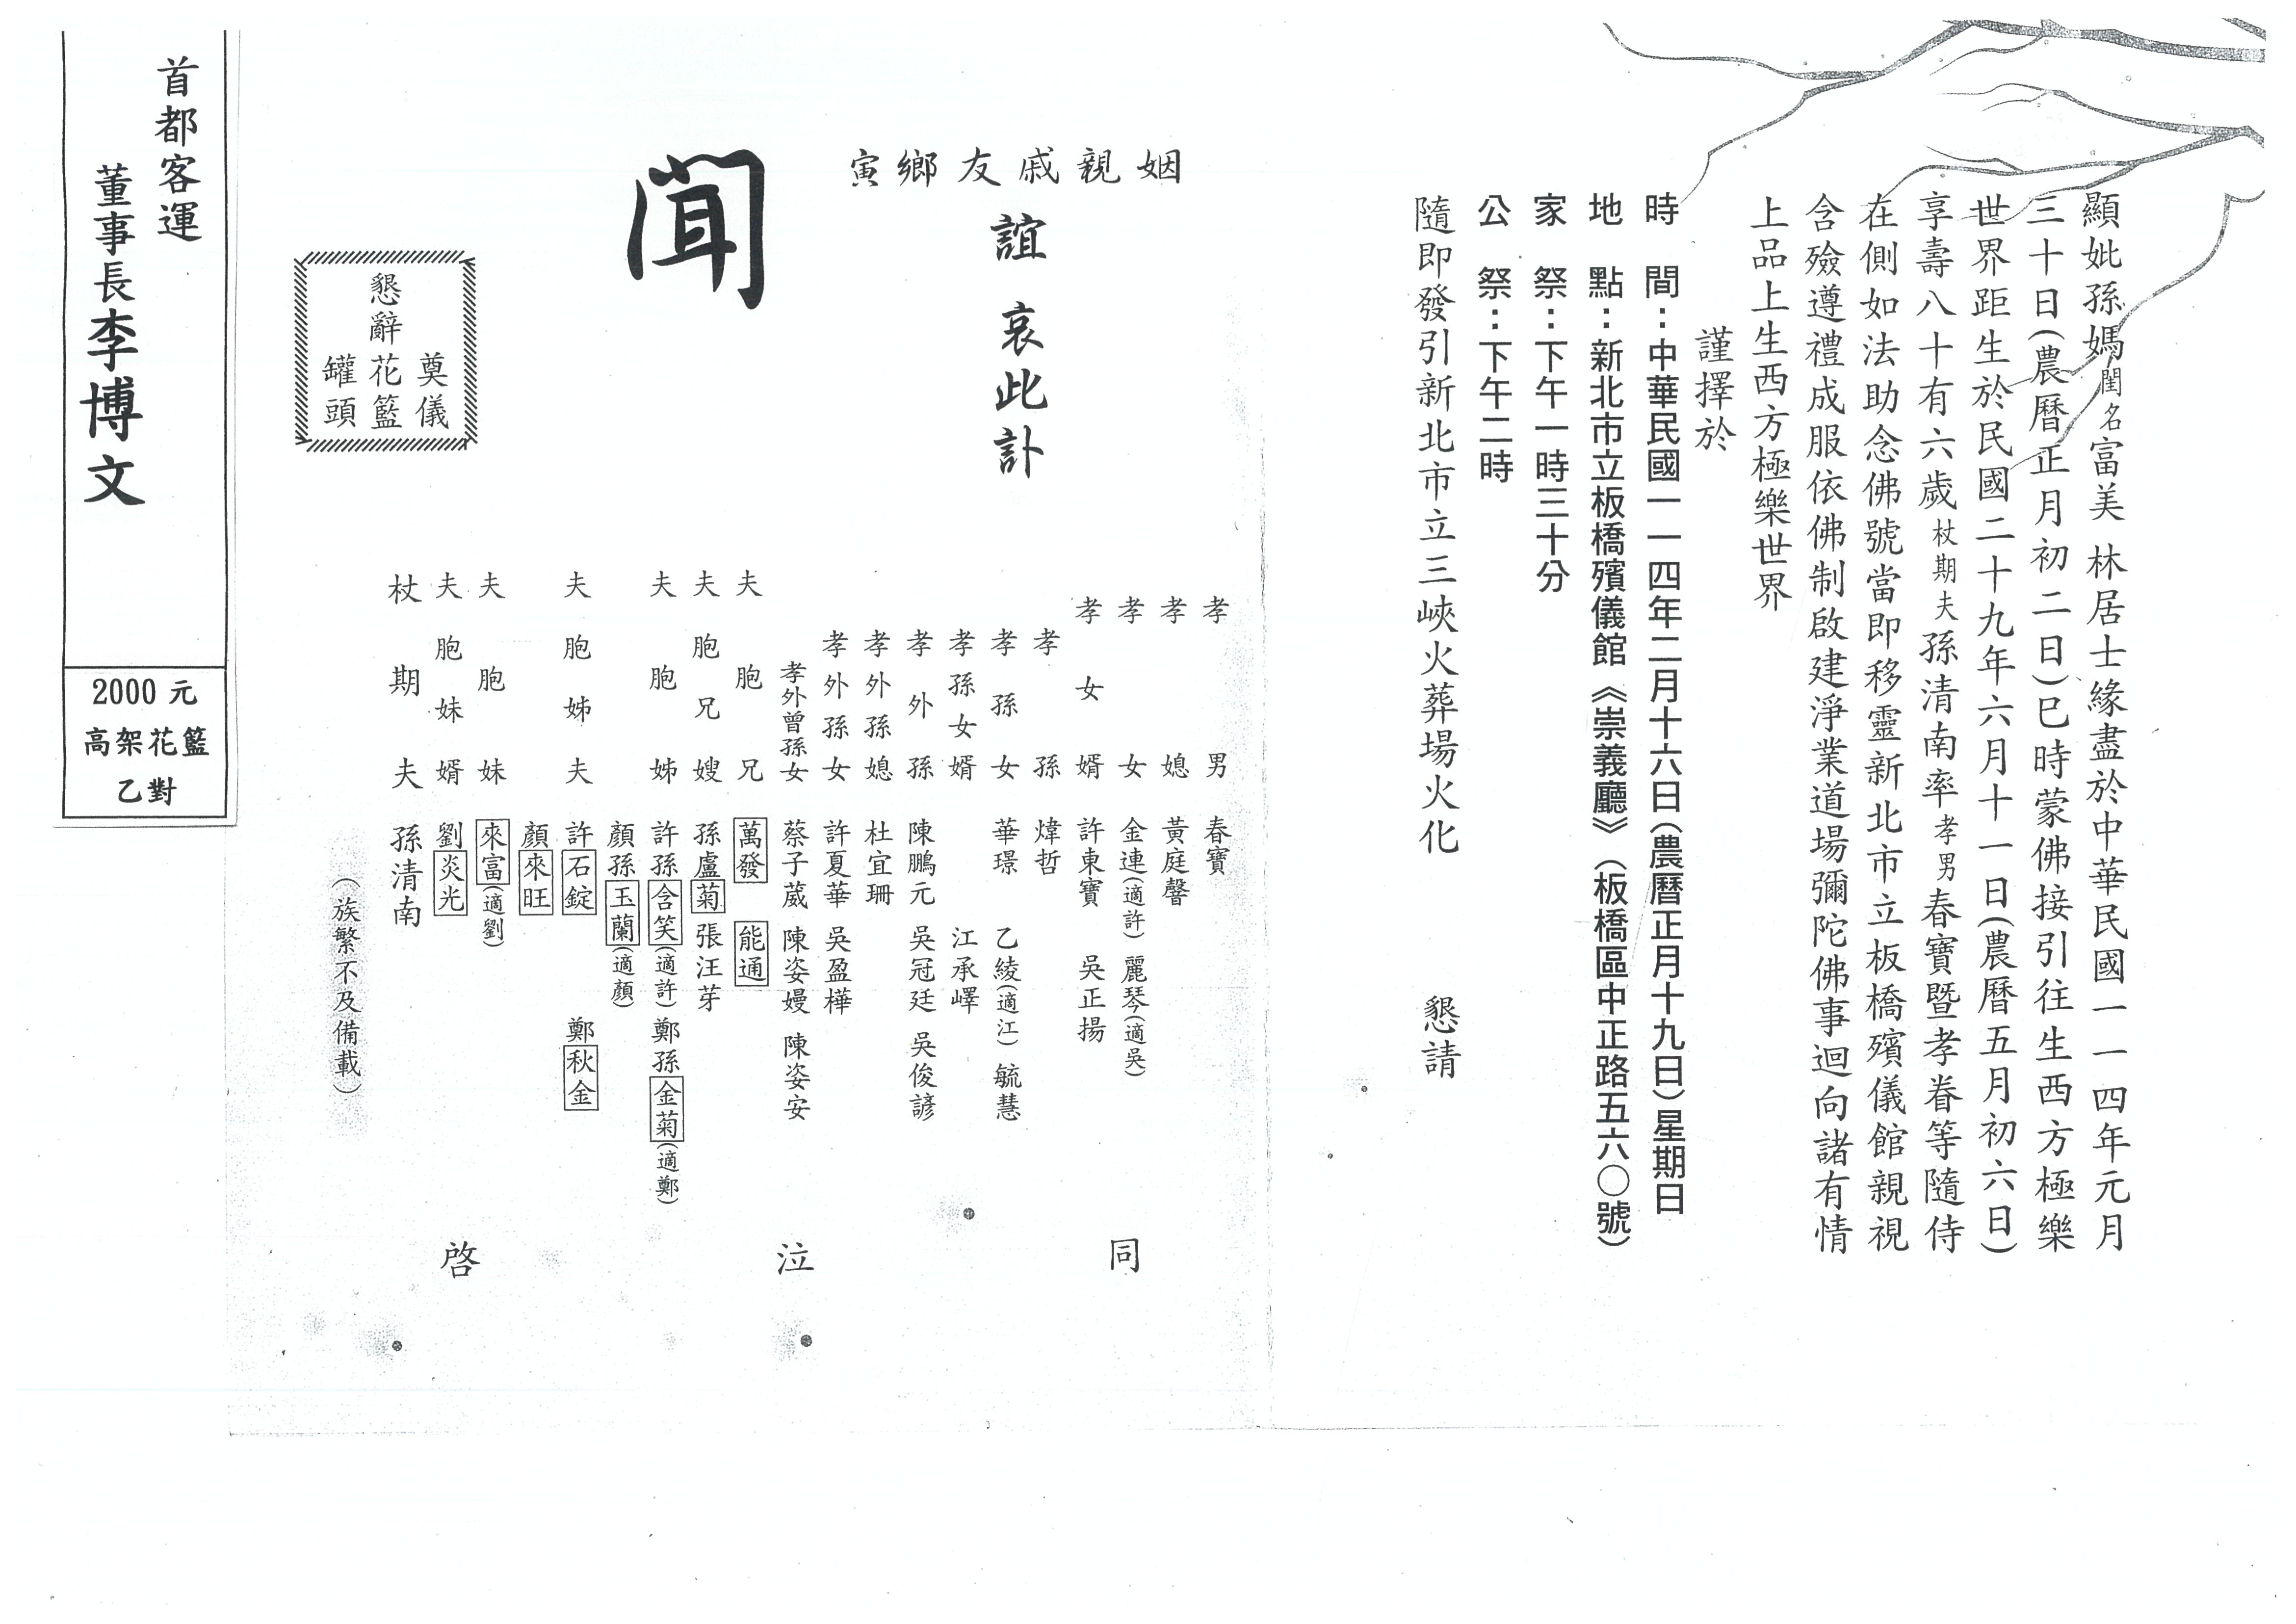 顯妣孫媽閨名富美 林居士緣盡於中華民國一一四年元月
三十日(農曆正月初二日)巳時蒙佛接引往生西方極樂
世界距生於民國二十九年六月十一日(農曆五月初六日)
享壽八十有六歲杖期夫孫清南率孝男春寶暨孝眷等隨侍
在側如法助念佛號當即移靈新北市立板橋殯儀館親視
含殮遵禮成服依佛制啟建淨業道場彌陀佛事迴向諸有情
上品上生西方極樂世界
謹擇於
時 間：中華民國一一四年二月十六日(農曆正月十九日)星期日
地 點：新北市立板橋殯儀館《崇義廳》(板橋區中正路五六○號)
家 祭：下午一時三十分
公 祭：下午二時
隨即發引新北市立三峽火葬場火化 懇請
姻親戚友鄉寅
誼 哀此訃
聞
孝男 春寶
孝媳 黃庭馨
孝女 金連(適許) 麗琴(適吳)
孝女婿 許東寶 吳正揚
孝孫 煒哲
孝孫女 華璟 乙綾(適江) 毓慧
孝孫女婿 江承嶧
孝外孫 陳鵬元 吳冠廷 吳俊諺
孝外孫媳 杜宜珊
孝外孫女 許夏華 吳盈樺
孝外曾孫女 蔡子葳 陳姿嫚 陳姿安
夫胞兄 萬發 能通
夫胞兄嫂 孫盧菊 張汪芽
夫胞姊 許孫含笑(適許) 鄭孫金菊(適鄭)
顏孫玉蘭(適顏)
夫胞姊夫 許石錠 鄭秋金
顏來旺
夫胞妹 來富(適劉)
夫胞妹婿 劉炎光
杖期夫 孫清南
(族繁不及備載)
同 泣 啓
懇辭
奠儀
花籃
罐頭
首都客運
董事長李博文
2000元
高架花籃
乙對